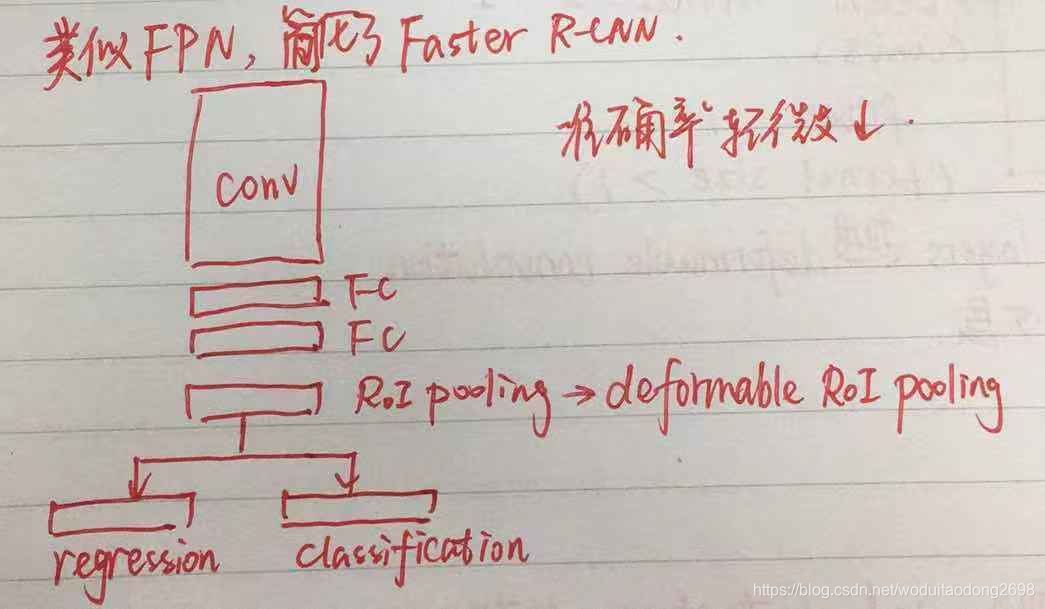 类似FPN,简化了Faster R-CNN.
准确率轻微↓.
conv
FC
FC
RoI pooling → deformable RoI pooling
regression
classification
https://blog.csdn.net/woduitaodong2698